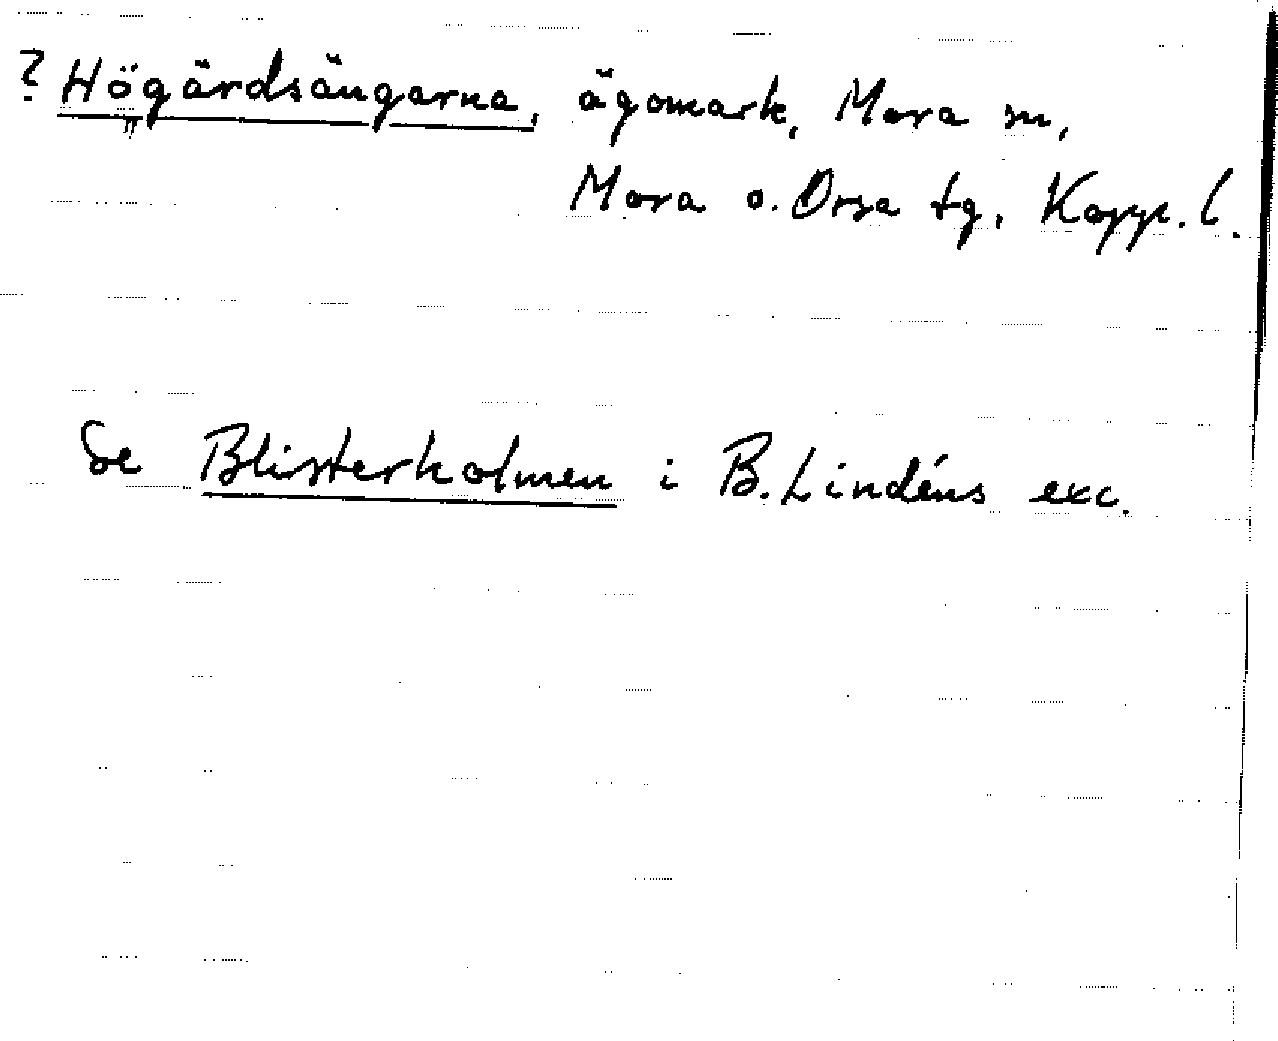 ? Högärdsängarna, ägomark, Mora sn,
Mora o. Orsa tg, Kopp. l.
Se Blisterholmen i B. Lindéns exc.